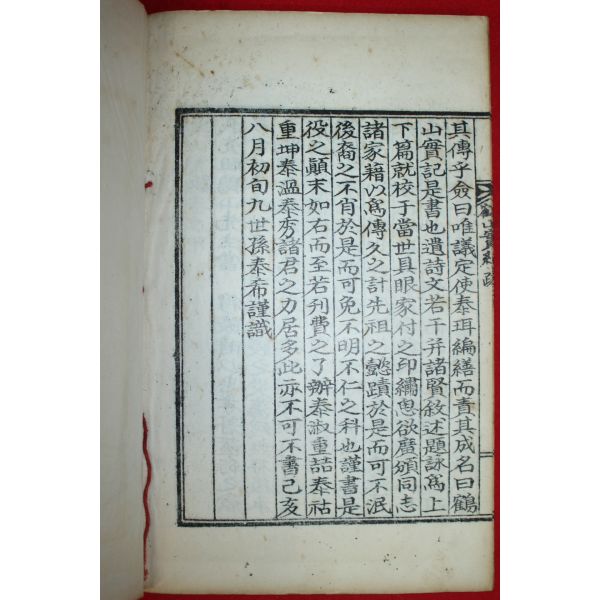 其傳乎僉曰唯議定使泰珥編繕而責其成名曰鶴
山實記是書也遺詩文若干并諸賢敘述題詠爲上
下篇就校于當世具眼家付之印繡思欲廣頒同志
諸家藉以爲傳久之計先祖之懿蹟於是而可不泯
後裔之不肖於是而可免不明不仁之科也謹書是
役之顚末如右而至若刊費之了辦泰淑重喆泰祜
重坤泰溫泰秀諸君之力居多此亦不可不書己亥
八月初旬九世孫泰希謹識
鶴山實紀 跋